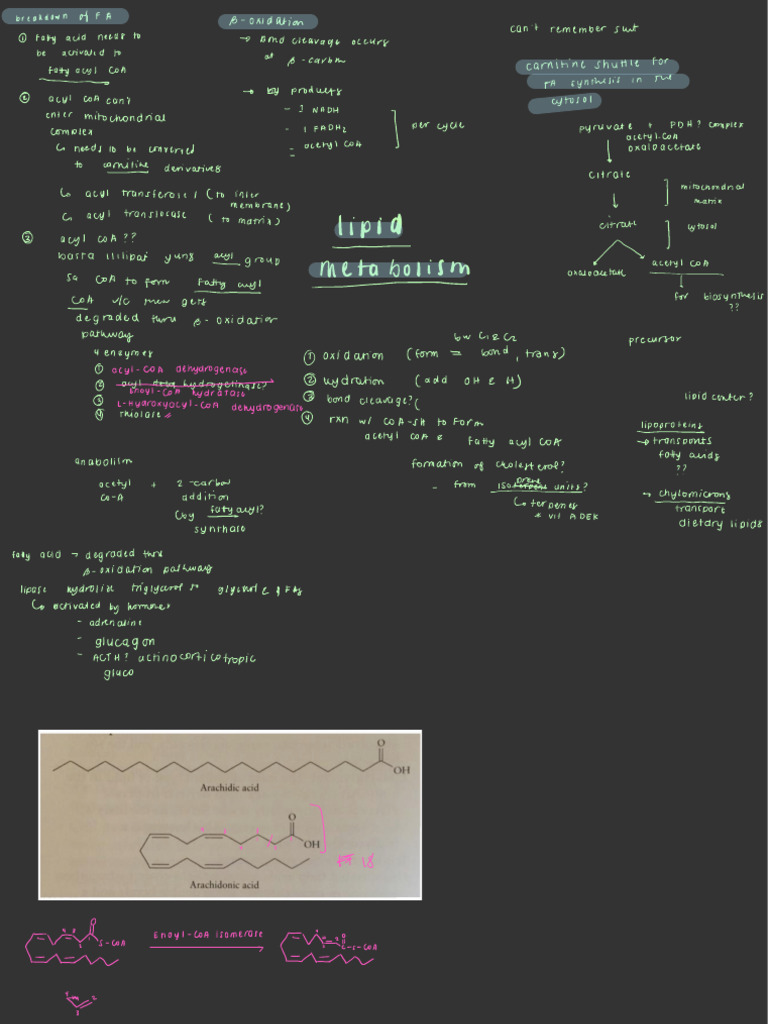 breakdown of FA
① Fatty acid needs to
be activated to
fatty acyl CoA
② acyl CoA can't
enter mitochondrial
complex
↳ needs to be converted
to carnitine derivatives
↳ acyl transferase 1 (to inter
membrane)
↳ acyl translocase (to matrix)
③ acyl CoA ??
basta ililipat yung acyl group
sa CoA to form fatty acyl
CoA w/c then gets
degraded thru β-oxidation
pathway
4 enzymes
① acyl-CoA dehydrogenase
②
enoyl-CoA hydratase
③ L-Hydroxyacyl-CoA dehydrogenase
④ thiolase
anabolism
acetyl + 2-carbon
Co-A addition
↳ by fatty acyl?
synthase
fatty acid → degraded thru
β-oxidation pathway
lipase hydrolize triglycerol to glycerol & FAs
↳ activated by hormones
- adrenaline
- glucagon
- ACTH? actinocorticotropic
gluco
β-oxidation
→ Bond cleavage occurs
at β-carbon
→ by products
- 1 NADH
- 1 FADH2
- acetyl CoA
per cycle
lipid
metabolism
can't remember
carnitine shuttle for
FA synthesis in the
cytosol
pyruvate + PDH? complex
acetyl-CoA
oxaloacetate
citrate
mitochondrial
matrix
citrate
cytosol
oxaloacetate acetyl CoA
for biosynthesis
??
bw C1 & C2
① oxidation (form = bond, trans)
② hydration (add OH & H)
③ bond cleavage? (
④ rxn w/ CoA-SH to form
acetyl CoA & fatty acyl CoA
formation of cholesterol?
- from isoprene units?
↳ terpenes
* vit ADEK
precursor
lipid center?
lipoproteins
→ transports
fatty acids
??
→ chylomicrons
transport
dietary lipids
O
OH
Arachidic acid
O
OH
Arachidonic acid
FA 18
O
S-CoA
Enoyl-CoA isomerase
O
C-S-CoA